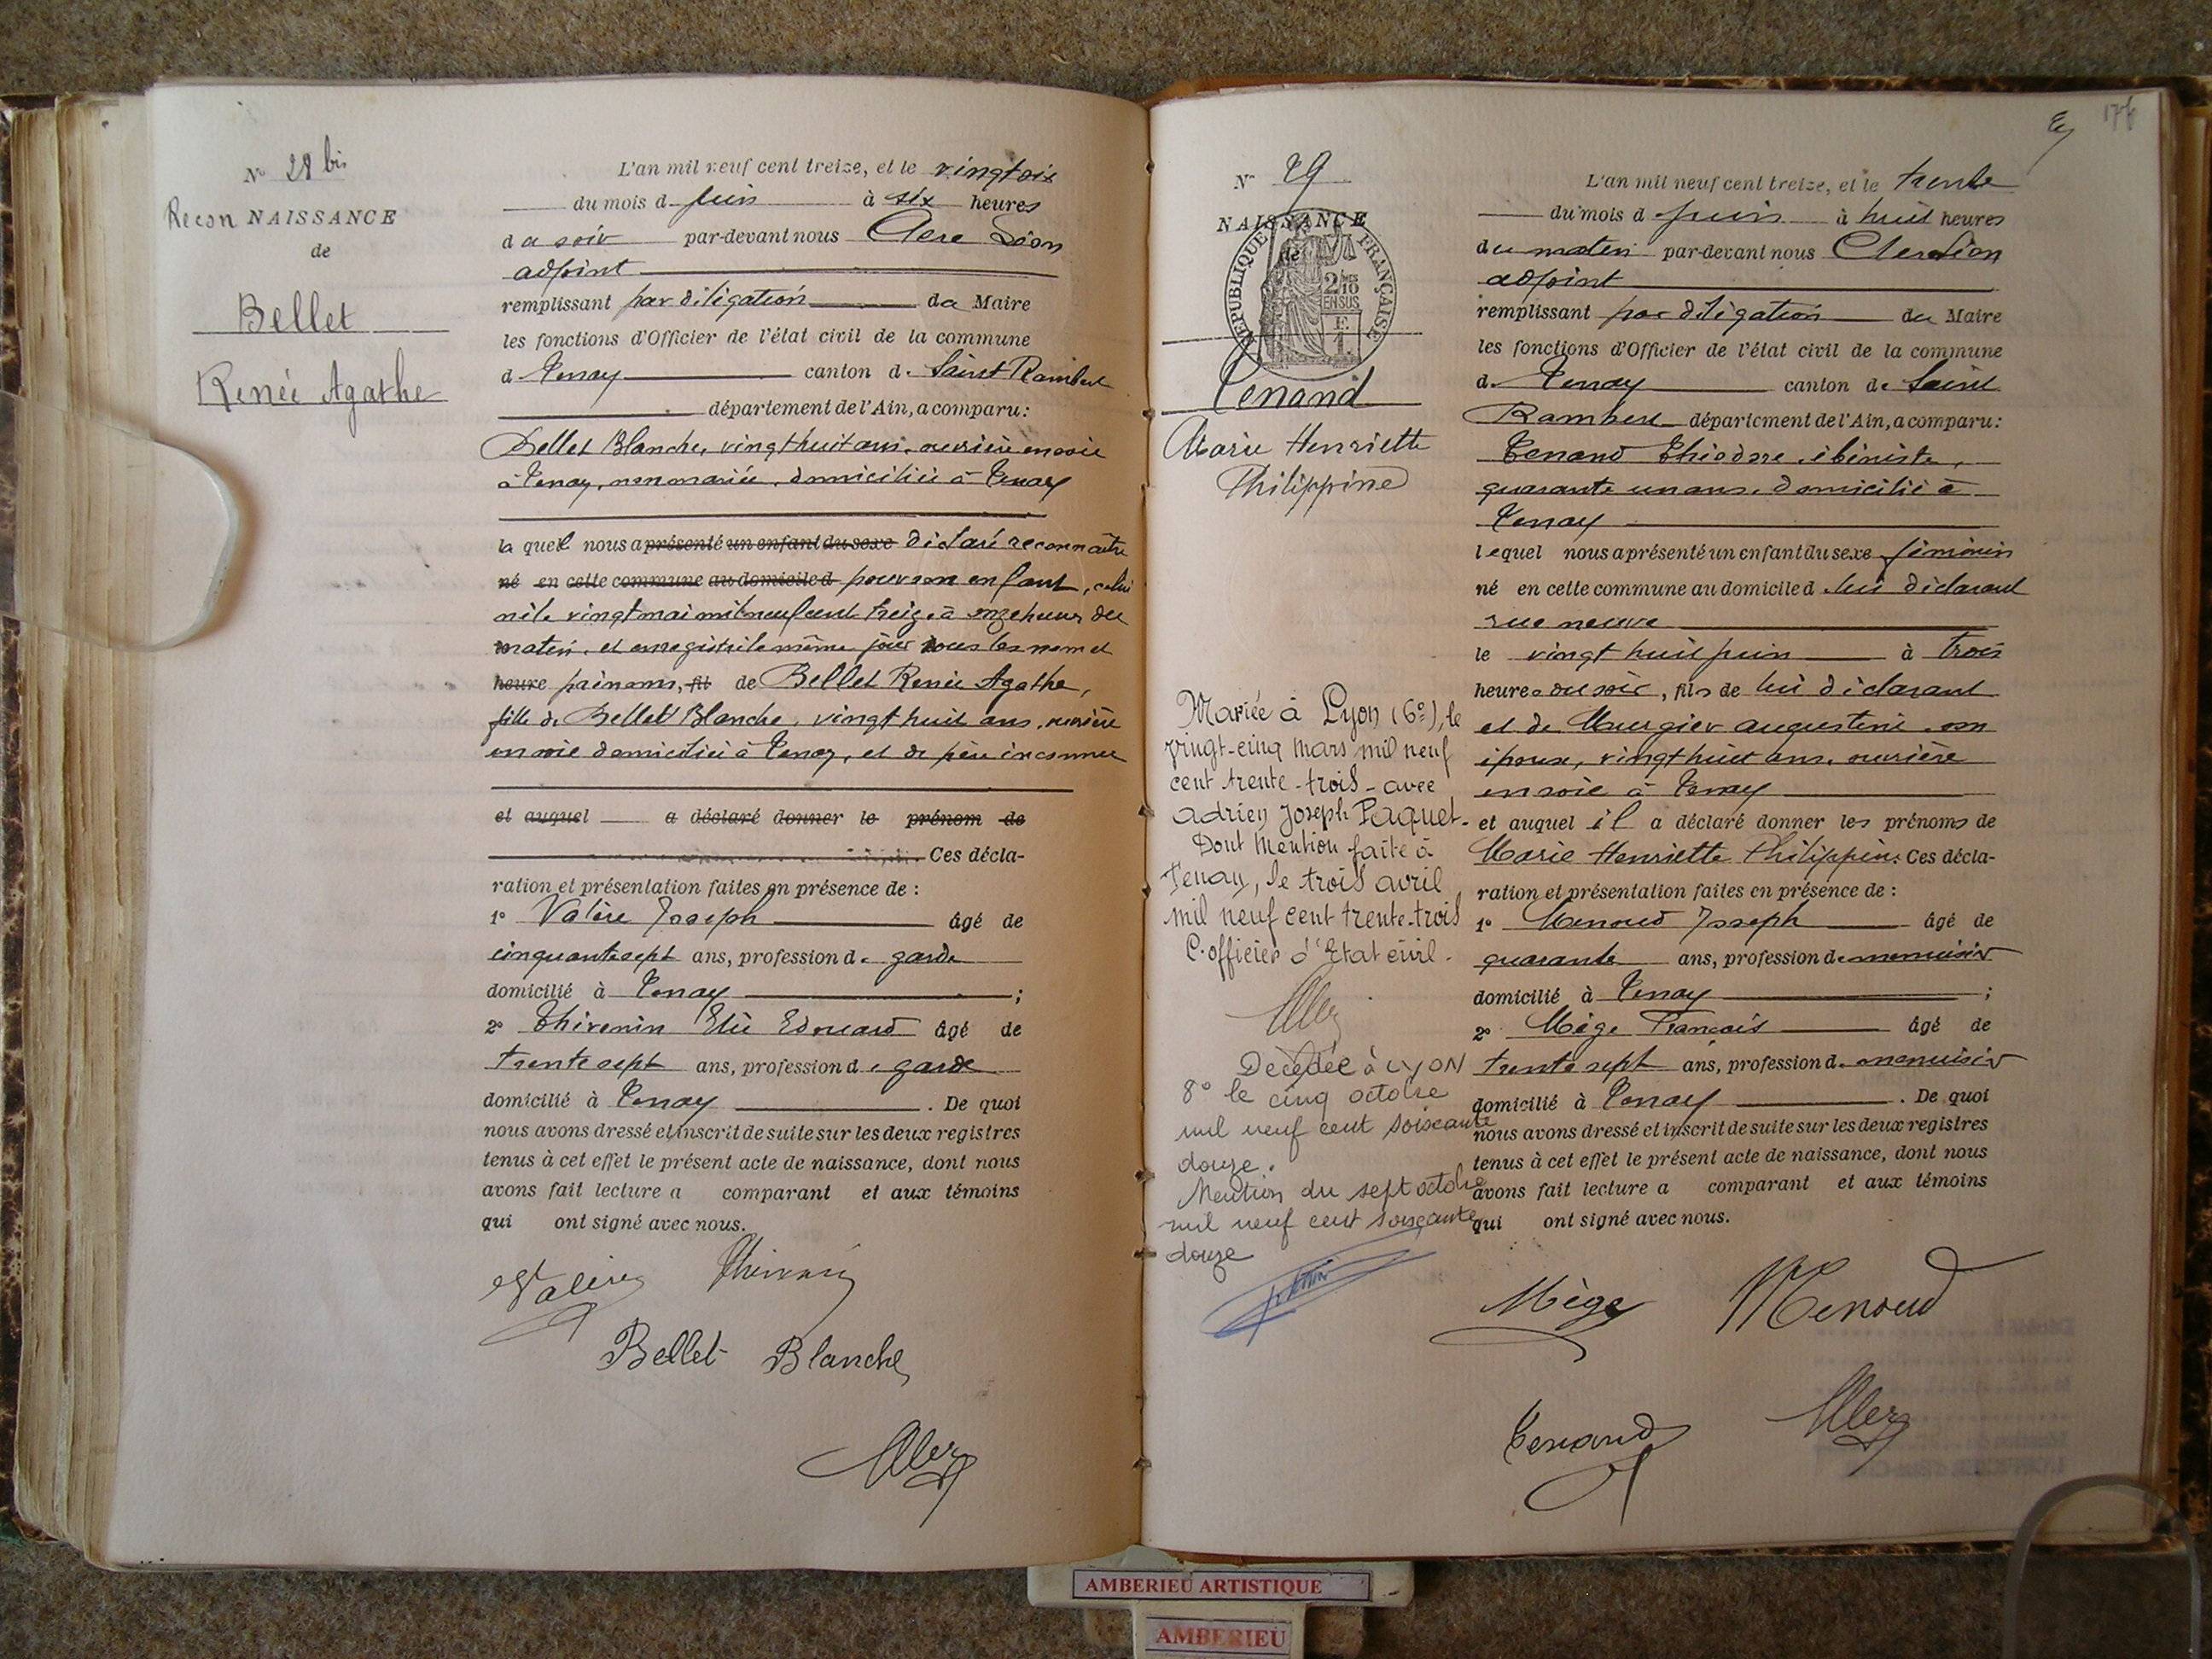 N° 28 bis
Recon NAISSANCE
de
Bellet
Renée Agathe
L'an mil neuf cent treize, et le vingt six
du mois d juin à six heures
du soir par-devant nous Clere Léon
adjoint
remplissant par déligation du Maire
les fonctions d'Officier de l'état civil de la commune
d. Tenay canton d. Saint Rambert
département de l'Ain, a comparu:
Bellet Blanche, vingt huit ans, ouvrière en soie
à Tenay, non mariée, domiciliée à Tenay
la quelle nous a présenté un enfant du sexe déclaré reconnaître
né en cette commune au domicile d pour son enfant, celui
né le vingt mai mil neuf cent treize à onze heures du
matin, et enregistré le même jour sous les nom et
heure prénoms, fil de Bellet Renée Agathe,
fille de Bellet Blanche, vingt huit ans, ouvrière
en soie domiciliée à Tenay, et de père inconnu
et auquel a déclaré donner le prénom de
Ces décla-
ration et présentation faites en présence de :
1° Valère Joseph âgé de
cinquante sept ans, profession d. garde
domicilié à Tenay ;
2° Thévenin Elie Edouard âgé de
trente sept ans, profession d. garde
domicilié à Tenay . De quoi
nous avons dressé et inscrit de suite sur les deux registres
tenus à cet effet le présent acte de naissance, dont nous
avons fait lecture a comparant et aux témoins
qui ont signé avec nous.
Valère Thévenin
Bellet Blanche
N° 29
NAISSANCE
de
REPUBLIQUE FRANÇAISE
2/10
EN SUS
Tenand
Marie Henriette
Philippine
Mariée à Lyon (6e), le
vingt-cinq mars mil neuf
cent trente-trois - avec
Adrien Joseph Paquet.
Dont Mention faite à
Tenay, le trois avril
mil neuf cent trente-trois
L'officier d'Etat civil.
Décédée à LYON
8° le cinq octobre
mil neuf cent soixante
douze.
Mention du sept octobre
mil neuf cent soixante
douze
176
L'an mil neuf cent treize, et le trente
du mois d juin à huit heures
du matin par-devant nous Clere Léon
adjoint
remplissant par déligation du Maire
les fonctions d'Officier de l'état civil de la commune
d. Tenay canton de Saint
Rambert département de l'Ain, a comparu:
Tenand Théodore, ébéniste,
quarante un ans, domicilié à
Tenay
lequel nous a présenté un enfant du sexe féminin
né en cette commune au domicile d. lui déclarant
rue neuve
le vingt huit juin à trois
heures du soir, fils de lui déclarant
et de Augustine, son
épouse, vingt huit ans, ouvrière
en soie à Tenay
et auquel il a déclaré donner les prénoms de
Marie Henriette Philippine. Ces décla-
ration et présentation faites en présence de :
1° Menoud Joseph âgé de
quarante ans, profession de menuisier
domicilié à Tenay ;
2° Mège François âgé de
trente sept ans, profession d. menuisier
domicilié à Tenay . De quoi
nous avons dressé et inscrit de suite sur les deux registres
tenus à cet effet le présent acte de naissance, dont nous
avons fait lecture a comparant et aux témoins
qui ont signé avec nous.
Mège Menoud
Tenand
AMBERIEU ARTISTIQUE
AMBERIEU